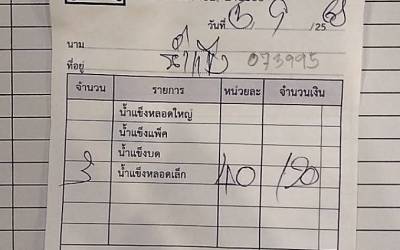 วันที่ 3 9 /25 68
นาม
ที่อยู่ 073995
จำนวน รายการ หน่วยละ จำนวนเงิน
น้ำแข็งหลอดใหญ่
น้ำแข็งแพ็ค
น้ำแข็งบด
3 น้ำแข็งหลอดเล็ก 40 120